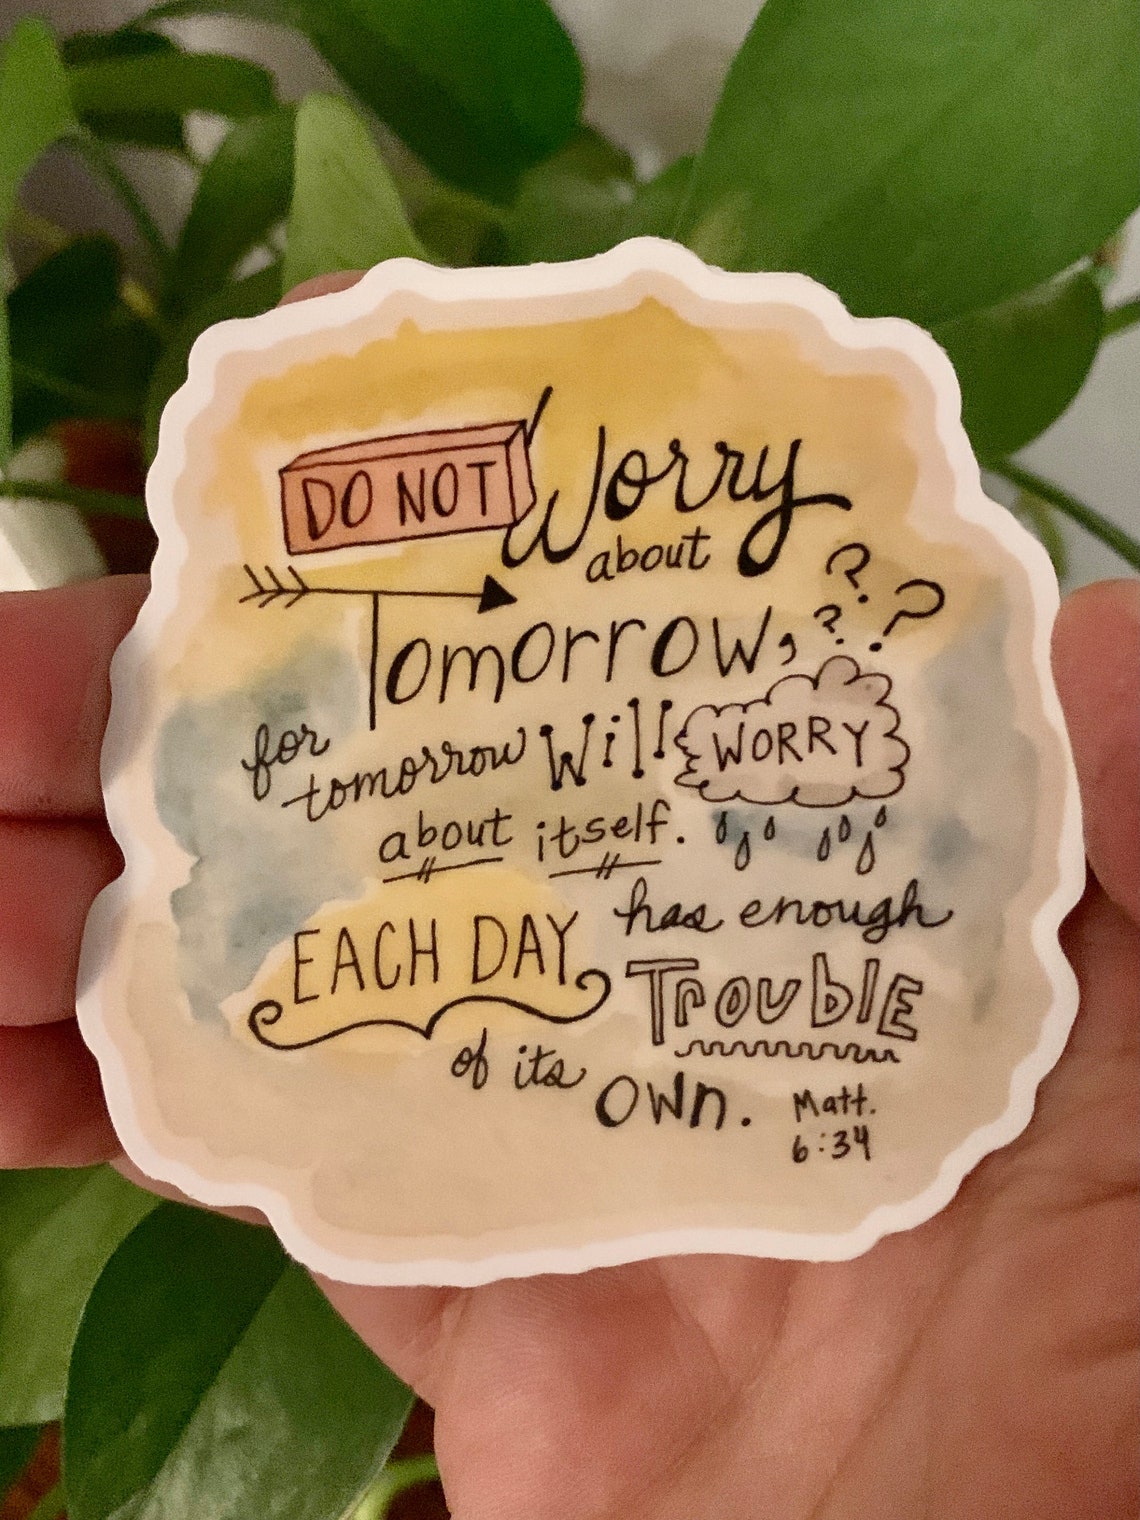 DO NOT Worry
about
Tomorrow, ???
for tomorrow Will WORRY
about itself.
EACH DAY has enough
TROUBLE
of its own.
Matt.
6:34